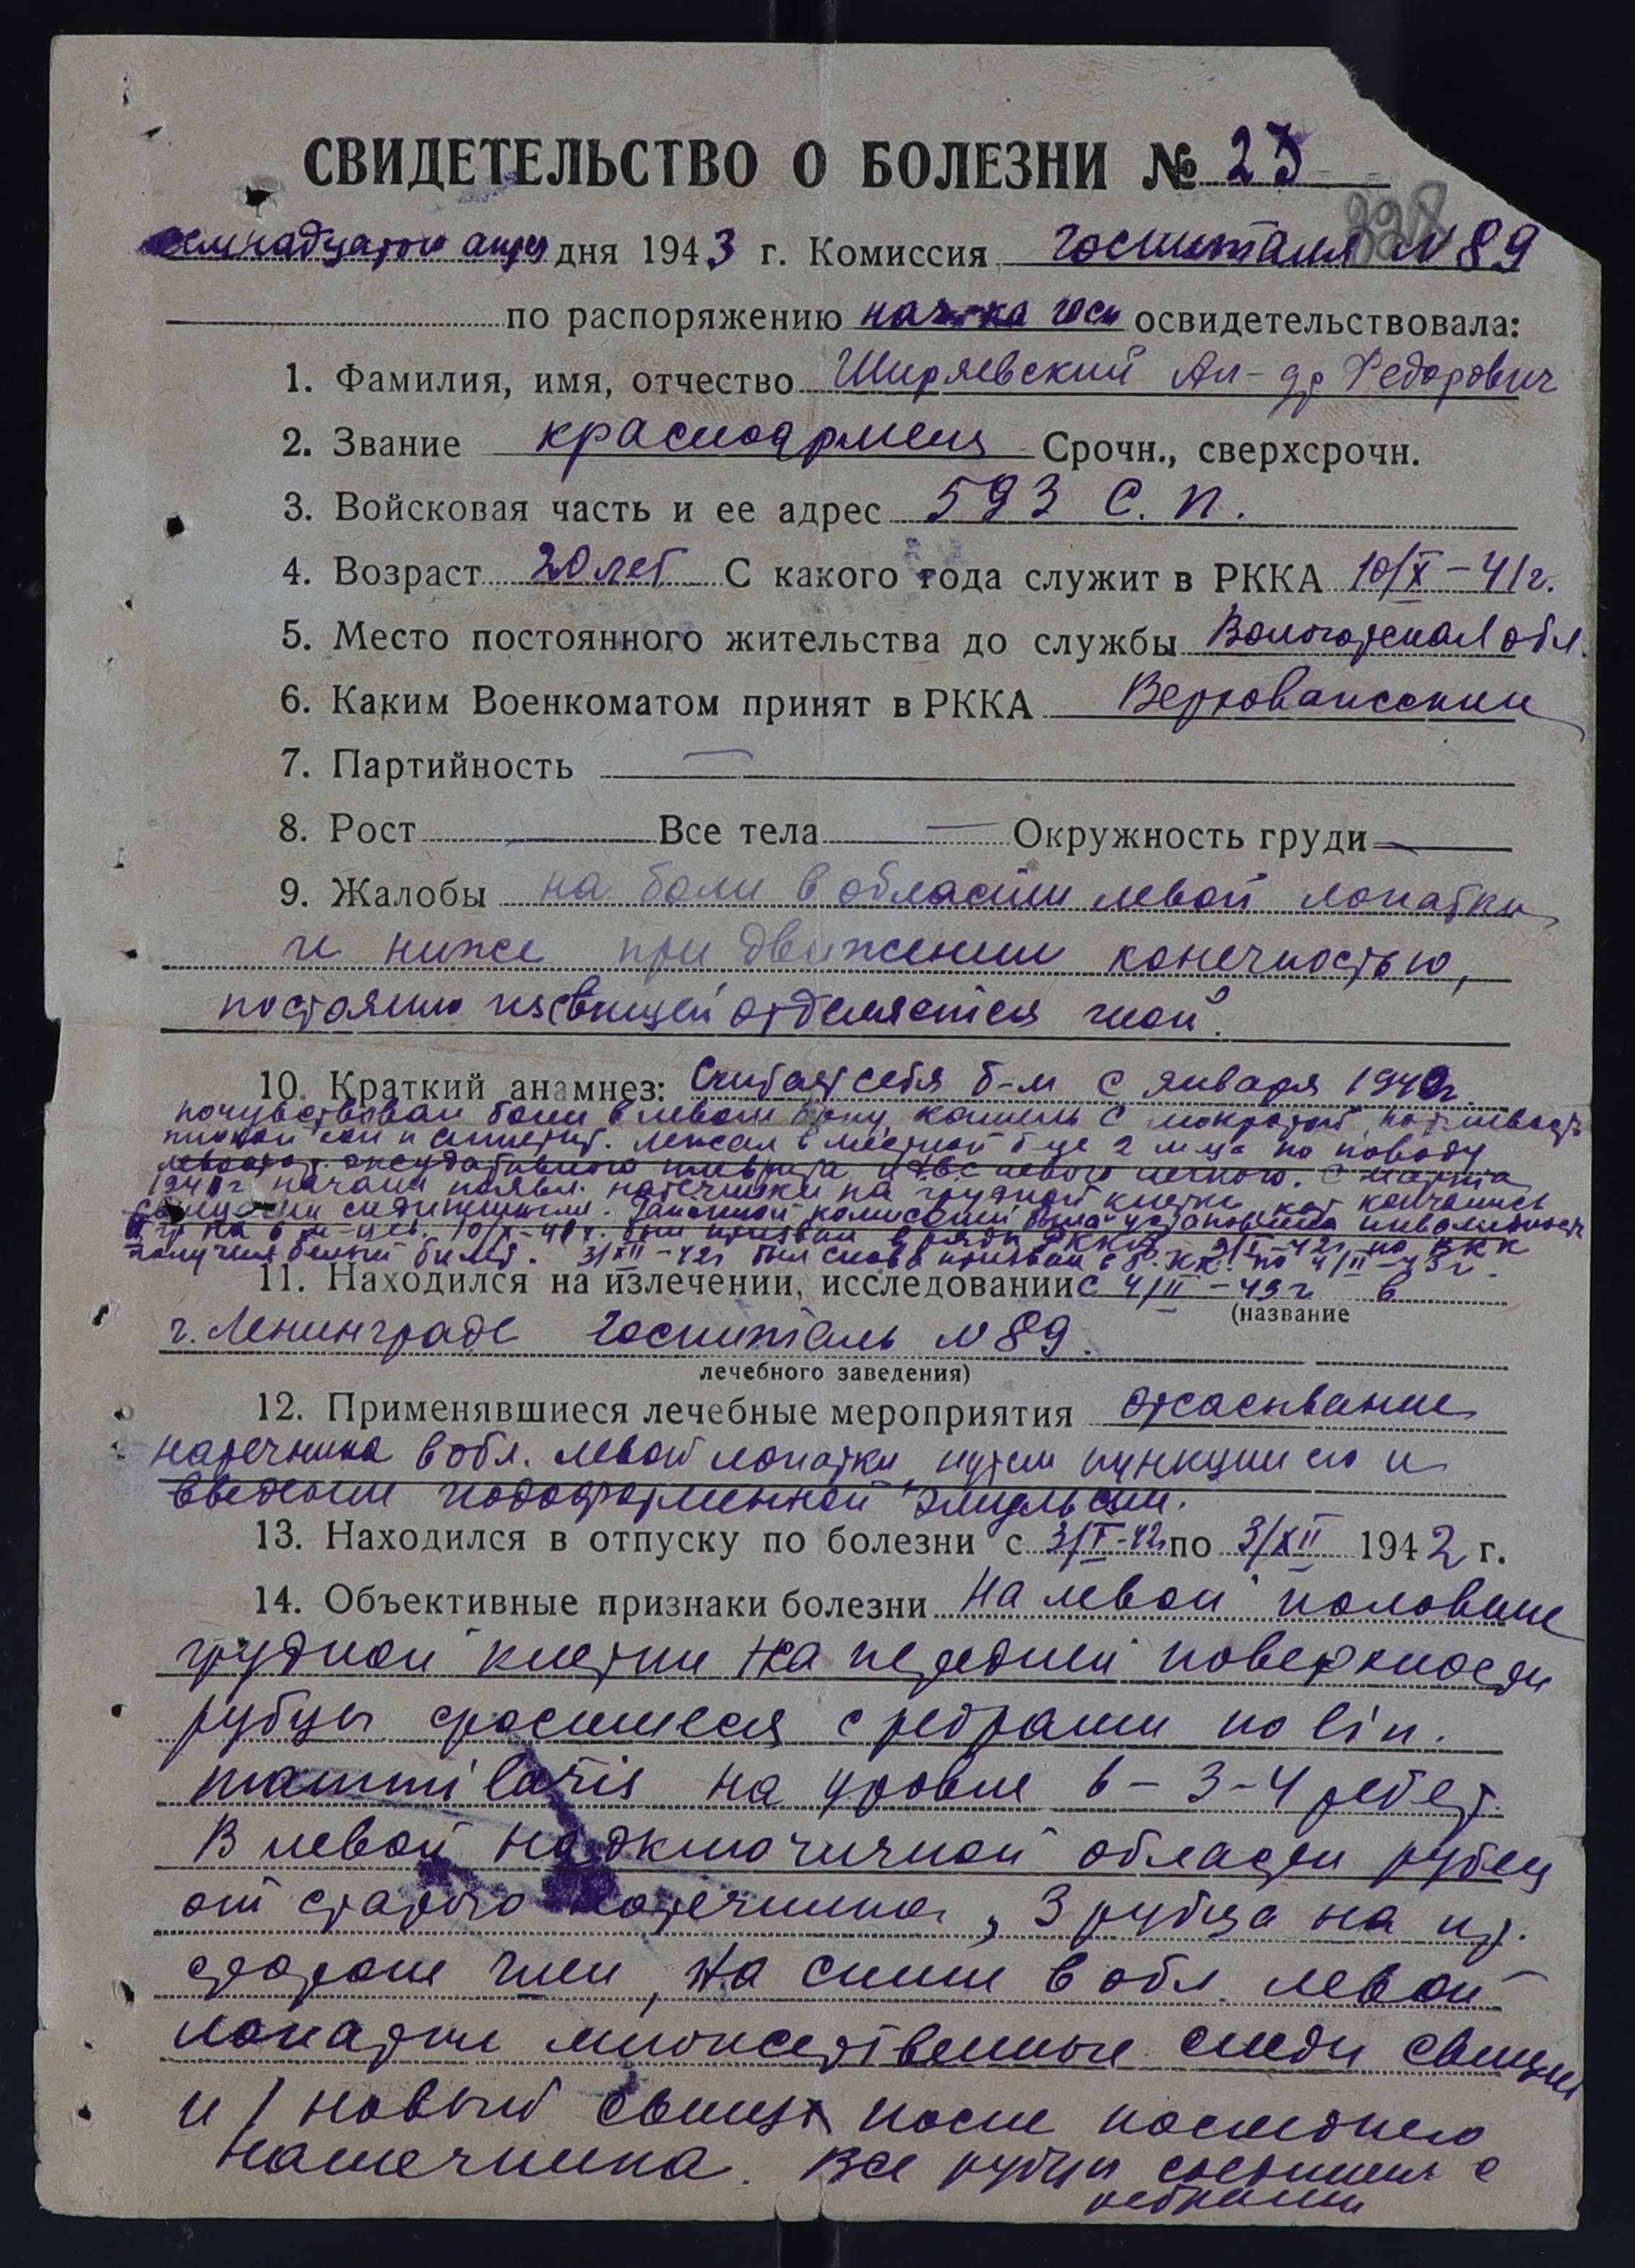 СВИДЕТЕЛЬСТВО О БОЛЕЗНИ № 23
дня 1943 г. Комиссия госпиталя № 89
по распоряжению нач-ка госп освидетельствовала:
1. Фамилия, имя, отчество Ширяевский Ал-др Федорович
2. Звание красноармеец Срочн., сверхсрочн.
3. Войсковая часть и ее адрес 593 С. П.
4. Возраст 20 лет С какого года служит в РККА 10/X-41г.
5. Место постоянного жительства до службы Вологодская обл.
6. Каким Военкоматом принят в РККА Верховажским
7. Партийность —
8. Рост — Все тела — Окружность груди —
9. Жалобы на боли в области левой лопатки
и ниже при движении конечностью,
постоянно из свищей отделяется гной.
10. Краткий анамнез: Считает себя б-м с января 1940г.
почувствовал боли в левом боку, кашель с мокротой, потливость
плохой сон и аппетит. Лежал в местной б-це 2 м-ца по поводу
левостор. экссудативного плеврита и левого легкого. С марта
1940г начали появл. натечники на грудной клетке, кот кончались
свищами. комиссией была установлена инвалидность
на 6 м-цев. 10/X-41г. был призван в ряды РККА 3/I-42г по ВКК
получил белый билет. 3/XII-42г был снова призван по 4/II-43г.
11. Находился на излечении, исследовании с 4/II-43г в
(название
г. Ленинграде Госпиталь № 89.
лечебного заведения)
12. Применявшиеся лечебные мероприятия отсасывание
натечника в обл. левой лопатки путем пункции его и
введения иодоформенной эмульсии.
13. Находился в отпуску по болезни с 3/I-42г по 3/XII 1942 г.
14. Объективные признаки болезни На левой половине
грудной клетки на передней поверхности
рубцы сросшиеся с ребрами по lin.
mammilaris на уровне 3-4 ребер.
В левой надключичной области рубец
от старого натечника, 3 рубца на пр.
стороне шеи, На спине в обл. левой
лопатки множественные следы свищей
и 1 новый свищ после последнего
натечника. Все рубцы с
ребрами